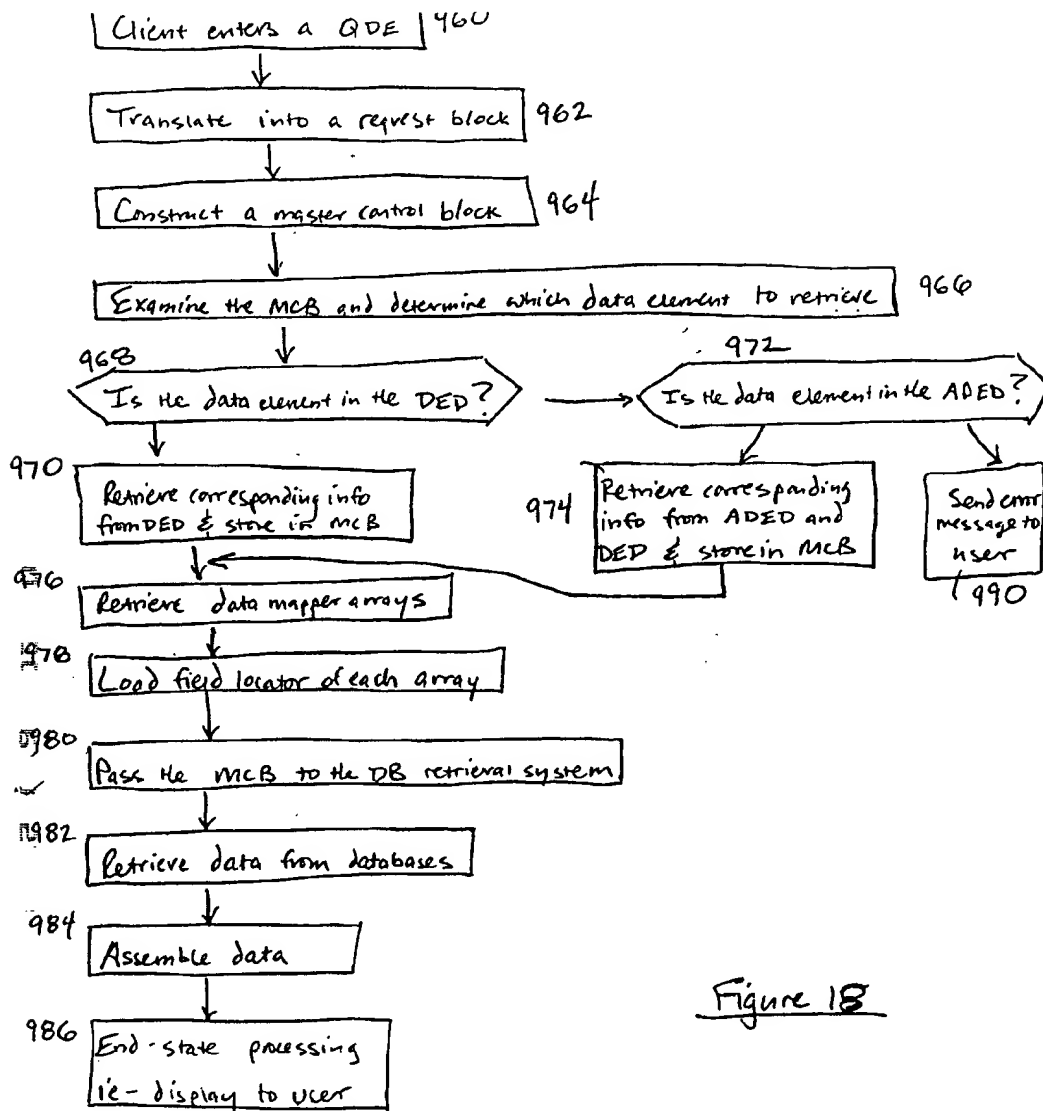 Client enters a QDE 960
Translate into a request block 962
Construct a master control block 964
Examine the MCB and determine which data element to retrieve 966
968
Is the data element in the DED?
972
Is the data element in the ADED?
970
Retrieve corresponding info
from DED & store in MCB
974
Retrieve corresponding
info from ADED and
DED & store in MCB
Send error
message to
user
990
976
Retrieve data mapper arrays
978
Load field locator of each array
980
Pass the MCB to the DB retrieval system
982
Retrieve data from databases
984
Assemble data
986
End-state processing
ie - display to user
Figure 18